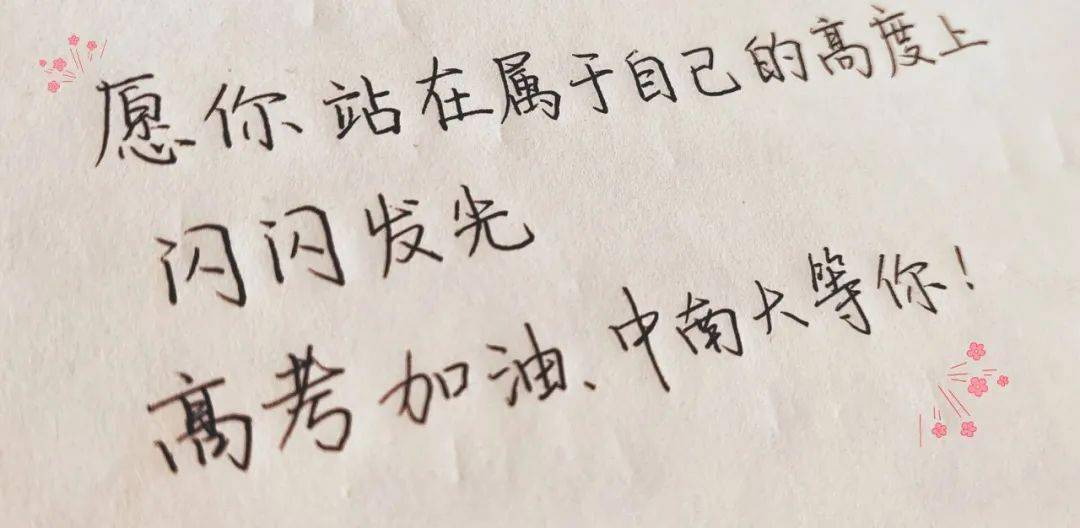 愿你站在属于自己的高度上
闪闪发光
高考加油、中南大等你!